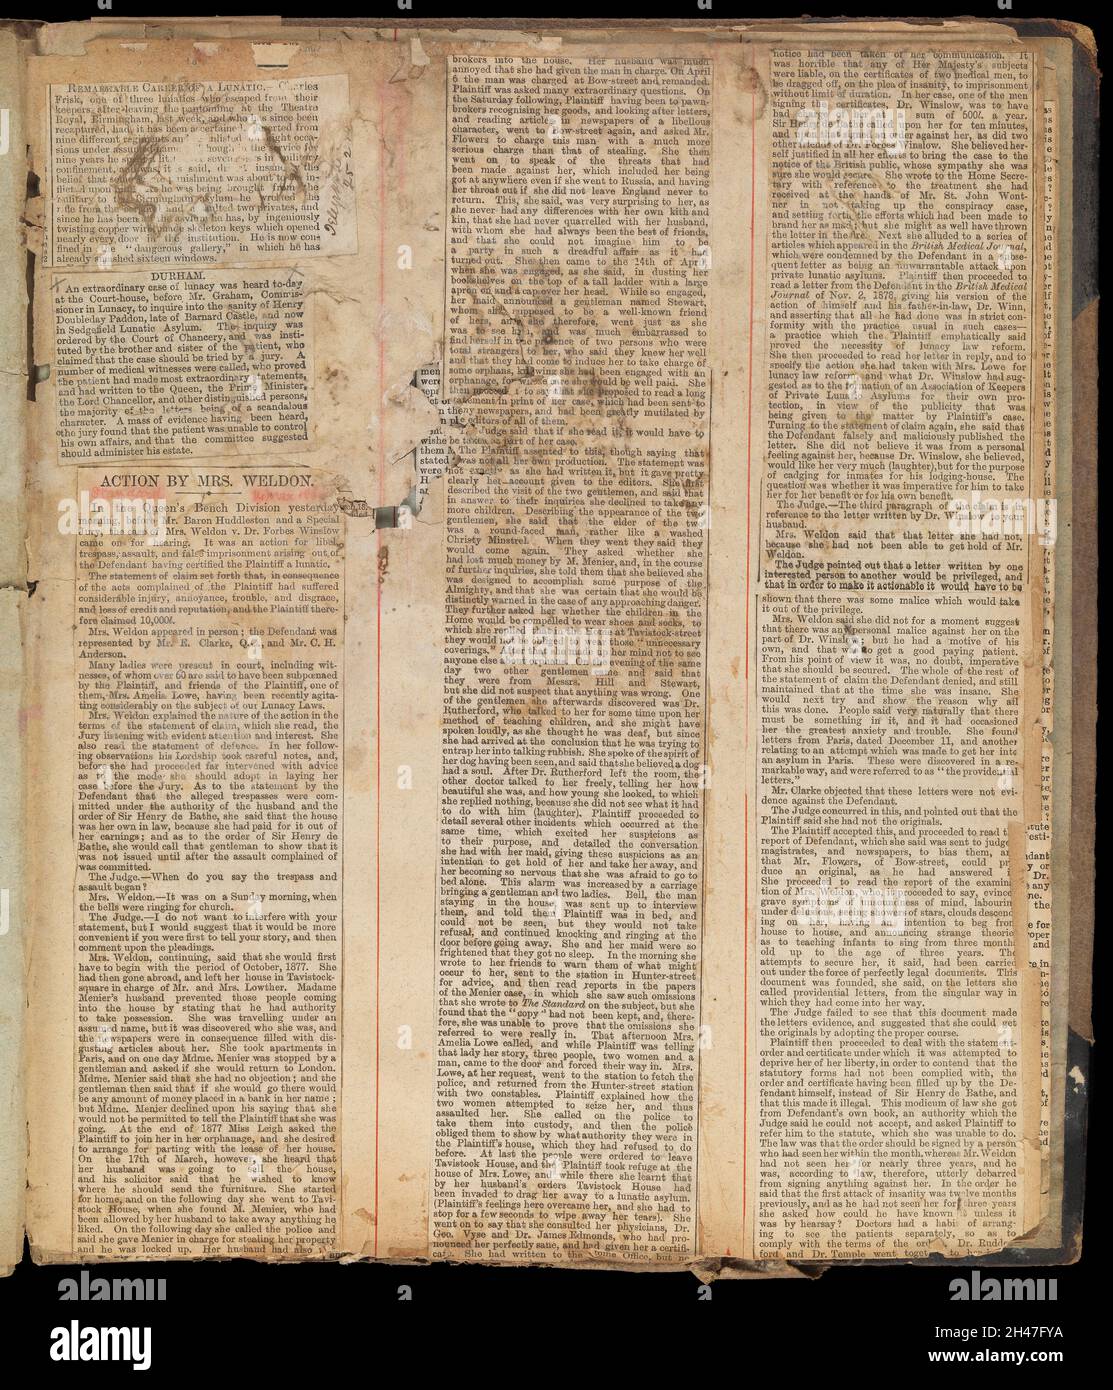 REMARKABLE CAREER OF A LUNATIC.— Charles
Frisk, one of three lunatics who escaped from their
keepers after leaving the pantomime at the Theatre
Royal, Birmingham, last week, and who has since been
nearly every door in the institution. He is now con-
fined in the "dangerous gallery," in which he has
already smashed sixteen windows.
DURHAM.
An extraordinary case of lunacy was heard to-day
at the Court-house, before Mr. Graham, Commis-
sioner in Lunacy, to inquire into the sanity of Henry
Doubleday Paddon, late of Barnard Castle, and now
in Sedgefield Lunatic Asylum. The inquiry was
ordered by the Court of Chancery, and was insti-
tuted by the brother and sister of the patient, who
claimed that the case should be tried by a jury. A
number of medical witnesses were called, who proved
the patient had made most extraordinary statements,
and had written to the Queen, the Prime Minister,
the Lord Chancellor, and other distinguished persons,
the majority of the letters being of a scandalous
character. A mass of evidence having been heard,
the jury found that the patient was unable to control
his own affairs, and that the committee suggested
should administer his estate.
ACTION BY MRS. WELDON.
Standard
In the Queen's Bench Division yesterday
morning, before Mr. Baron Huddleston and a Special
Jury, the case of Mrs. Weldon v. Dr. Forbes Winslow
came on for hearing. It was an action for libel,
trespass, assault, and false imprisonment arising out of
the Defendant having certified the Plaintiff a lunatic.
The statement of claim set forth that, in consequence
of the acts complained of, the Plaintiff had suffered
considerable injury, annoyance, trouble, and disgrace,
and loss of credit and reputation, and the Plaintiff there-
fore claimed 10,000l.
Mrs. Weldon appeared in person; the Defendant was
represented by Mr. E. Clarke, Q.C., and Mr. C. H.
Anderson.
Many ladies were present in court, including wit-
nesses, of whom over 60 are said to have been subpœnaed
by the Plaintiff, and friends of the Plaintiff, one of
them, Mrs. Amelia Lowe, having been recently agita-
ting considerably on the subject of our Lunacy Laws.
Mrs. Weldon explained the nature of the action in the
terms of the statement of claim, which she read, the
Jury listening with evident attention and interest. She
also read the statement of defence. In her follow-
ing observations his Lordship took careful notes, and,
before she had proceeded far intervened with advice
as to the mode she should adopt in laying her
case before the Jury. As to the statement by the
Defendant that the alleged trespasses were com-
mitted under the authority of the husband and the
order of Sir Henry de Bathe, she said that the house
was her own in law, because she had paid for it out of
her earnings; and as to the order of Sir Henry de
Bathe, she would call that gentleman to show that it
was not issued until after the assault complained of
was committed.
The Judge.—When do you say the trespass and
assault began?
Mrs. Weldon.—It was on a Sunday morning, when
the bells were ringing for church.
The Judge.—I do not want to interfere with your
statement, but I would suggest that it would be more
convenient if you were first to tell your story, and then
comment upon the pleadings.
Mrs. Weldon, continuing, said that she would first
have to begin with the period of October, 1877. She
had then gone abroad, and left her house in Tavistock-
square in charge of Mr. and Mrs. Lowther. Madame
Menier's husband prevented those people coming
into the house by stating that he had authority
to take possession. She was travelling under an
assumed name, but it was discovered who she was, and
the newspapers were in consequence filled with dis-
gusting articles about her. She took apartments in
Paris, and on one day Mdme. Menier was stopped by a
gentleman and asked if she would return to London.
Mdme. Menier said that she had no objection; and the
gentleman then said if she would go there would
be any amount of money placed in a bank in her name;
but Mdme. Menier declined upon his saying that she
would not be permitted to tell the Plaintiff that she was
going. At the end of 1877 Miss Leigh asked the
Plaintiff to join her in her orphanage, and she desired
to arrange for parting with the lease of her house.
On the 17th of March, however, she heard that
her husband was going to sell the house,
and his solicitor said that he wished to know
where he should send the furniture. She started
for home, and on the following day she went to Tavi-
stock House, when she found M. Menier, who had
been allowed by her husband to take away anything he
liked. On the following day she called the police and
said she gave Menier in charge for stealing her property
and he was locked up. Her husband had also
brokers into the house. Her husband was much
annoyed that she had given the man in charge. On April
6 the man was charged at Bow-street and remanded.
Plaintiff was asked many extraordinary questions. On
the Saturday following, Plaintiff having been to pawn-
brokers recognising her goods, and looking after letters,
and reading articles in newspapers of a libellous
character, went to Bow-street again, and asked Mr.
Flowers to charge this man with a much more
serious charge than that of stealing. She then
went on to speak of the threats that had
been made against her, which included her being
got at anywhere even if she went to Russia, and having
her throat cut if she did not leave England never to
return. This, she said, was very surprising to her, as
she never had any differences with her own kith and
kin, that she had never quarrelled with her husband,
with whom she had always been the best of friends,
and that she could not imagine him to be
party in such a dreadful affair as it had
turned out. She then came to the 14th of April,
when she was engaged, as she said, in dusting her
bookshelves on the top of a tall ladder with a large
apron on and a cap over her head. While so engaged,
her maid announced a gentleman named Stewart,
whom she supposed to be a well-known friend
of hers, and she therefore, went just as she
was to see him, and was much embarrassed to
find herself in the presence of two persons who were
total strangers to her, who said they knew her well
and that they had come to induce her to take charge of
some orphans, knowing she had been engaged with an
orphanage, for whose care she would be well paid. She
The Judge said that if she read it, it would have to
be taken as part of her case.
The Plaintiff assented to this, though saying that
was not all her own production. The statement was
not exactly as she had written it, but it gave pretty
clearly her account given to the editors. She first
described the visit of the two gentlemen, and said that
in answer to their inquiries she declined to take any
more children. Describing the appearance of the two
gentlemen, she said that the elder of the two
was a round-faced man, rather like a washed
Christy Minstrel. When they went they said they
would come again. They asked whether she
had lost much money by M. Menier, and, in the course
of further inquiries, she told them that she believed she
was designed to accomplish some purpose of the
Almighty, and that she was certain that she would be
distinctly warned in the case of any approaching danger.
They further asked her whether the children in the
Home would be compelled to wear shoes and socks, to
which she replied that in the House at Tavistock-street
they would not be obliged to wear those "unnecessary
coverings." After that she made up her mind not to see
anyone else about orphans. On the evening of the same
day two other gentlemen came and said that
they were from Messrs. Hill and Stewart,
but she did not suspect that anything was wrong. One
of the gentlemen she afterwards discovered was Dr.
Rutherford, who talked to her for some time upon her
method of teaching children, and she might have
spoken loudly, as she thought he was deaf, but since
she had arrived at the conclusion that he was trying to
entrap her into talking rubbish. She spoke of the spirit of
her dog having been seen, and said that she believed a dog
had a soul. After Dr. Rutherford left the room, the
other doctor talked to her freely, telling her how
beautiful she was, and how young she looked, to which
she replied nothing, because she did not see what it had
to do with him (laughter). Plaintiff proceeded to
detail several other incidents which occurred at the
same time, which excited her suspicions as
to their purpose, and detailed the conversation
she had with her maid, giving these suspicions as an
intention to get hold of her and take her away, and
her becoming so nervous that she was afraid to go to
bed alone. This alarm was increased by a carriage
bringing a gentleman and two ladies. Bell, the man
staying in the house, was sent up to interview
them, and told them Plaintiff was in bed, and
could not be seen, but they would not take
refusal, and continued knocking and ringing at the
door before going away. She and her maid were so
frightened that they got no sleep. In the morning she
wrote to her friends to warn them of what might
occur to her, sent to the station in Hunter-street
for advice, and then read reports in the papers
of the Menier case, in which she saw such omissions
that she wrote to The Standard on the subject, but she
found that the "copy" had not been kept, and, there-
fore, she was unable to prove that the omissions she
referred to were really in. That afternoon Mrs.
Amelia Lowe called, and while Plaintiff was telling
that lady her story, three people, two women and a
man, came to the door and forced their way in. Mrs.
Lowe, at her request, went to the station to fetch the
police, and returned from the Hunter-street station
with two constables. Plaintiff explained how the
two women attempted to seize her, and thus
assaulted her. She called on the police to
take them into custody, and then the police
obliged them to show by what authority they were in
the Plaintiff's house, which they had refused to do
before. At last the people were ordered to leave
Tavistock House, and the Plaintiff took refuge at the
house of Mrs. Lowe, and while there she learnt that
by her husband's orders Tavistock House had
been invaded to drag her away to a lunatic asylum.
(Plaintiff's feelings here overcame her, and she had to
stop for a few seconds to wipe away her tears). She
went on to say that she consulted her physicians, Dr.
Geo. Vyse and Dr. James Edmonds, who had pro-
nounced her perfectly sane, and had given her a certifi-
cate. She had written to the Home Office, but no
notice had been taken of her communication. It
was horrible that any of Her Majesty's subjects
were liable, on the certificates of two medical men, to
be dragged off, on the plea of insanity, to imprisonment
without limit of duration. In her case, one of the men
signing the certificates, Dr. Winslow, was to have
had sum of 500l. a year.
Sir Henry de Bathe called upon her for ten minutes,
and then made an order against her, as did two
other friends of Dr. Forbes Winslow. She believed her-
self justified in all her efforts to bring the case to the
notice of the British public, whose sympathy she was
sure she would secure. She wrote to the Home Secre-
tary with reference to the treatment she had
received at the hands of Mr. St. John Wont-
ner in not taking up the conspiracy case,
and setting forth the efforts which had been made to
brand her as mad; but she might as well have thrown
the letter in the fire. Next she alluded to a series of
articles which appeared in the British Medical Journal,
which were condemned by the Defendant in a subse-
quent letter as being an unwarrantable attack upon
private lunatic asylums. Plaintiff then proceeded to
read a letter from the Defendant in the British Medical
Journal of Nov. 2, 1878, giving his version of the
action of himself and his father-in-law, Dr. Winn,
and asserting that all he had done was in strict con-
formity with the practice usual in such cases—
a practice which the Plaintiff emphatically said
proved the necessity of lunacy law reform.
She then proceeded to read her letter in reply, and to
specify the action she had taken with Mrs. Lowe for
lunacy law reform, and what Dr. Winslow had sug-
gested as to the formation of an Association of Keepers
of Private Lunatic Asylums for their own pro-
tection, in view of the publicity that was
being given to the matter by Plaintiff's case.
Turning to the statement of claim again, she said that
the Defendant falsely and maliciously published the
letter. She did not believe it was from a personal
feeling against her, because Dr. Winslow, she believed,
would like her very much (laughter), but for the purpose
of cadging for inmates for his lodging-house. The
question was whether it was imperative for him to take
her for her benefit or for his own benefit.
The Judge.—The third paragraph of the claim has
reference to the letter written by Dr. Winslow to your
husband.
Mrs. Weldon said that that letter she had not,
because she had not been able to get hold of Mr.
Weldon.
The Judge pointed out that a letter written by one
interested person to another would be privileged, and
that in order to make it actionable it would have to be
shown that there was some malice which would take
it out of the privilege.
Mrs. Weldon said she did not for a moment suggest
that there was any personal malice against her on the
part of Dr. Winslow; but he had a motive of his
own, and that was to get a good paying patient.
From his point of view it was, no doubt, imperative
that she should be secured. The whole of the rest of
the statement of claim the Defendant denied, and still
maintained that at the time she was insane. She
would next try and show the reason why all
this was done. People said very naturally that there
must be something in it, and it had occasioned
her the greatest anxiety and trouble. She found
letters from Paris, dated December 11, and another
relating to an attempt which was made to get her into
an asylum in Paris. These were discovered in a re-
markable way, and were referred to as "the providential
letters."
Mr. Clarke objected that these letters were not evi-
dence against the Defendant.
The Judge concurred in this, and pointed out that the
Plaintiff said she had not the originals.
The Plaintiff accepted this, and proceeded to read the
report of Defendant, which she said was sent to judges,
magistrates, and newspapers, to bias them, and
that Mr. Flowers, of Bow-street, could pro-
duce an original, as he had answered it.
She proceeded to read the report of the examina-
tion of Mrs. Weldon, who, it proceeded to say, evinced
under delusions, seeing showers of stars, clouds descend-
ing on her, having an intention to beg from
house to house, and announcing strange theories
as to teaching infants to sing from three months
old up to the age of three years. The
attempts to secure her, it said, had been carried
out under the force of perfectly legal documents. This
document was founded, she said, on the letters she
called providential letters, from the singular way in
which they had come into her way.
The Judge failed to see that this document made
the letters evidence, and suggested that she could get
the originals by adopting the proper course.
Plaintiff then proceeded to deal with the statement,
order and certificate under which it was attempted to
deprive her of her liberty, in order to contend that the
statutory forms had not been complied with, the
order and certificate having been filled up by the De-
fendant himself, instead of Sir Henry de Bathe, and
that this made it illegal. This modicum of law she got
from Defendant's own book, an authority which the
Judge said he could not accept, and asked Plaintiff to
refer him to the statute, which she was unable to do.
The law was that the order should be signed by a person
who had seen her within the month, whereas Mr. Weldon
had not seen her for nearly three years, and he
was, according to law, therefore, utterly debarred
from signing anything against her. In the order he
said that the first attack of insanity was twelve months
previously, and as he had not seen her for three years
she asked how could he have known it unless it
was by hearsay? Doctors had a habit of arrang-
ing to see the patients separately, so as to
comply with the terms of the order. Dr. Rudder-
ford and Dr. Temple went together to
alamy
Image ID: 2H47FYA
www.alamy.com